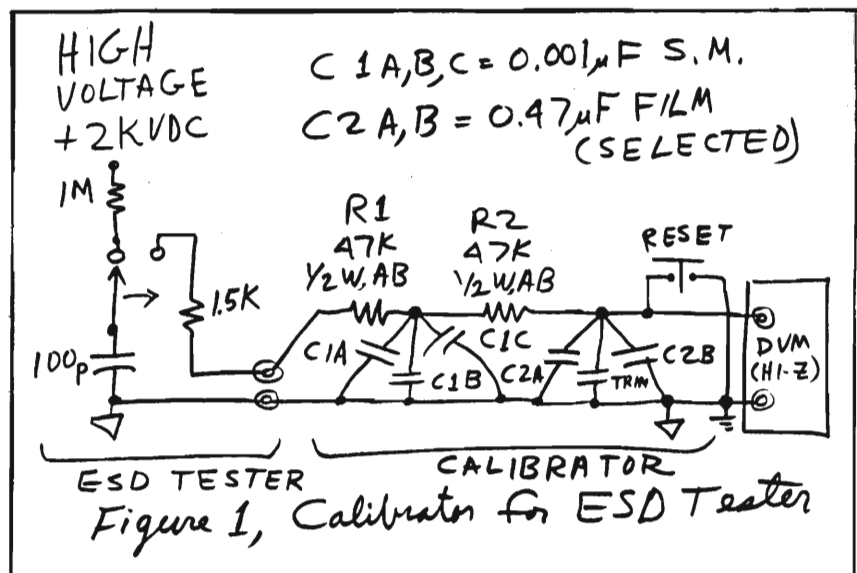 HIGH
VOLTAGE
+2KVDC
C 1A,B,C = 0.001µF S.M.
C2A,B = 0.47µF FILM
(SELECTED)
1M
R1
47K
1/2W,AB
R2
47K
1/2W,AB
RESET
1.5K
100p
C1A
C1B
C1C
C2A
TRIM
C2B
DVM
(HI-Z)
ESD TESTER
CALIBRATOR
Figure 1, Calibrator for ESD Tester